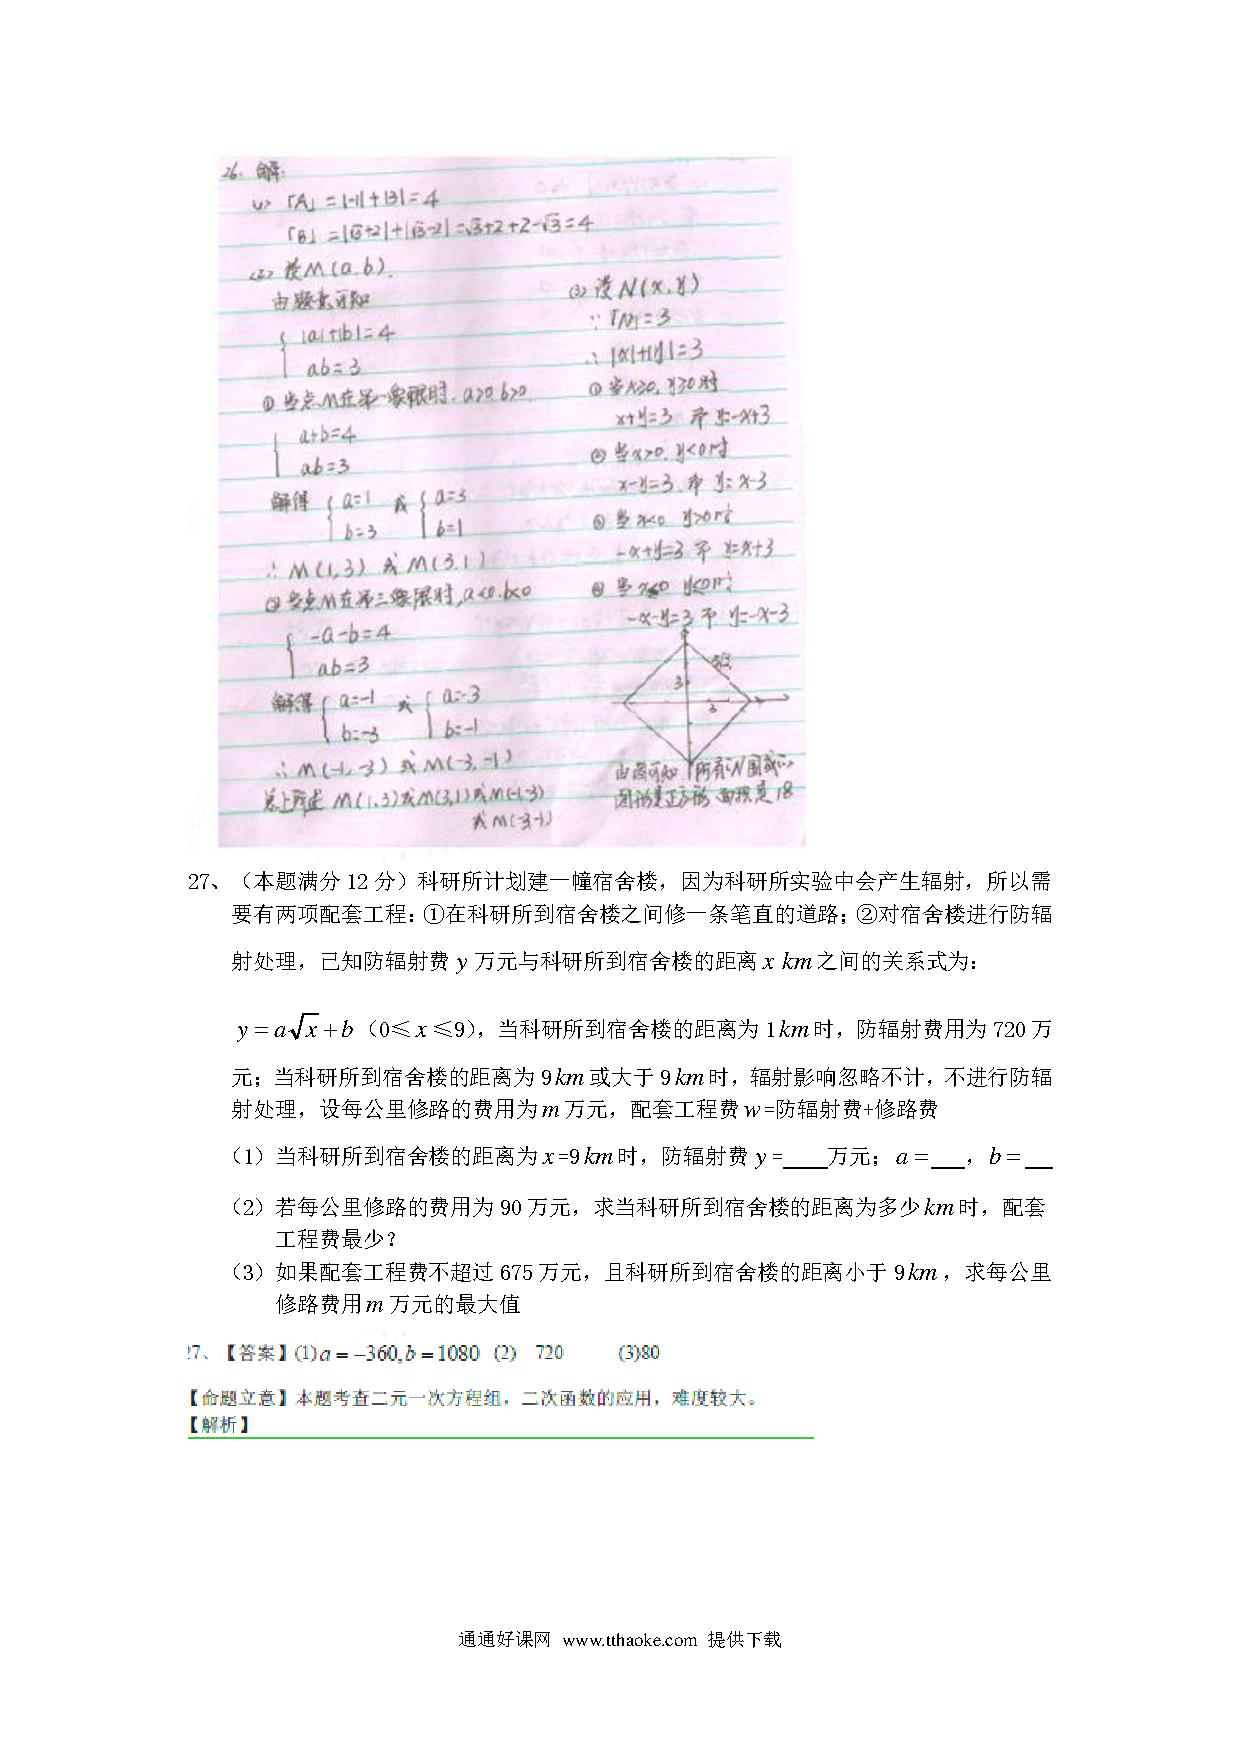 26. 解:
(1) 「A」=|-1|+|3|=4
「B」=|√3+2|+|√3-2|=√3+2+2-√3=4
(2) 设M(a.b).
由题意可知
{ |a|+|b|=4
ab=3
① 当点M在第一象限时. a>0.b>0
{ a+b=4
ab=3
解得 { a=1 b=3 或 { a=3 b=1
∴ M(1,3) 或 M(3,1)
② 当点M在第三象限时,a<0.b<0
{ -a-b=4
ab=3
解得 { a=-1 b=-3 或 { a=-3 b=-1
∴ M(-1,-3) 或 M(-3,-1)
综上所述 M(1,3)或M(3,1)或M(-1,-3)
或M(-3,-1)
(3) 设N(x,y)
∵「N」=3
∴ |x|+|y|=3
① 当x>0, y>0时
x+y=3 即 y=-x+3
② 当x>0, y<0时
x-y=3. 即 y=x-3
③ 当x<0 y>0时
-x+y=3 即 y=x+3
④ 当x<0 y<0时
-x-y=3 即 y=-x-3
3√2
3
3
由图可知 所有N围成的
图形是正方形 面积是18
27、（本题满分 12 分）科研所计划建一幢宿舍楼，因为科研所实验中会产生辐射，所以需
要有两项配套工程：①在科研所到宿舍楼之间修一条笔直的道路；②对宿舍楼进行防辐
射处理，已知防辐射费 y 万元与科研所到宿舍楼的距离 x km 之间的关系式为：
y = a√x + b（0≤ x ≤9），当科研所到宿舍楼的距离为 1km 时，防辐射费用为 720 万
元；当科研所到宿舍楼的距离为 9km 或大于 9km 时，辐射影响忽略不计，不进行防辐
射处理，设每公里修路的费用为 m 万元，配套工程费 w =防辐射费+修路费
（1）当科研所到宿舍楼的距离为 x =9km 时，防辐射费 y =____万元；a = ___，b = ___
（2）若每公里修路的费用为 90 万元，求当科研所到宿舍楼的距离为多少 km 时，配套
工程费最少？
（3）如果配套工程费不超过 675 万元，且科研所到宿舍楼的距离小于 9km，求每公里
修路费用 m 万元的最大值
27、【答案】(1)a = −360,b = 1080 (2) 720 (3)80
【命题立意】本题考查二元一次方程组，二次函数的应用，难度较大。
【解析】
通通好课网 www.tthaoke.com 提供下载